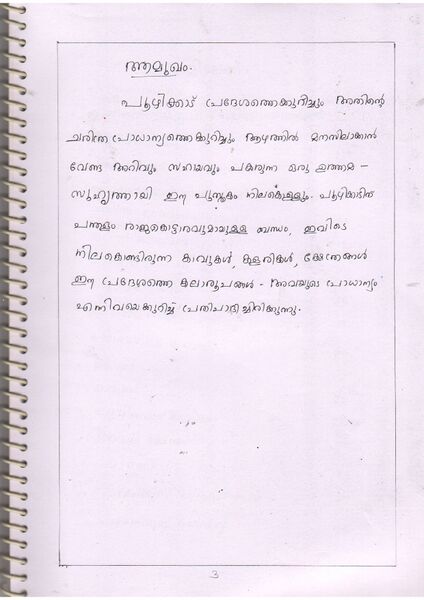 ആമുഖം.
പൂഴിക്കാട് പ്രദേശത്തെക്കുറിച്ചും അതിന്റെ
ചരിത്ര പ്രാധാന്യത്തെക്കുറിച്ചും ആഴത്തിൽ മനസിലാക്കാൻ
വേണ്ട അറിവും സഹായവും പകരുന്ന ഒരു ഉത്തമ -
സുഹൃത്തായി ഈ പുസ്തകം നിലകൊള്ളും. പൂഴിക്കാടിന്
പന്തളം രാജകൊട്ടാരവുമായുള്ള ബന്ധം, ഇവിടെ
നിലകൊണ്ടിരുന്ന കാവുകൾ, കളരികൾ, ക്ഷേത്രങ്ങൾ
ഈ പ്രദേശത്തെ കലാരൂപങ്ങൾ - അവയുടെ പ്രാധാന്യം
എന്നിവയെക്കുറിച്ച് പ്രതിപാദിച്ചിരിക്കുന്നു.
3